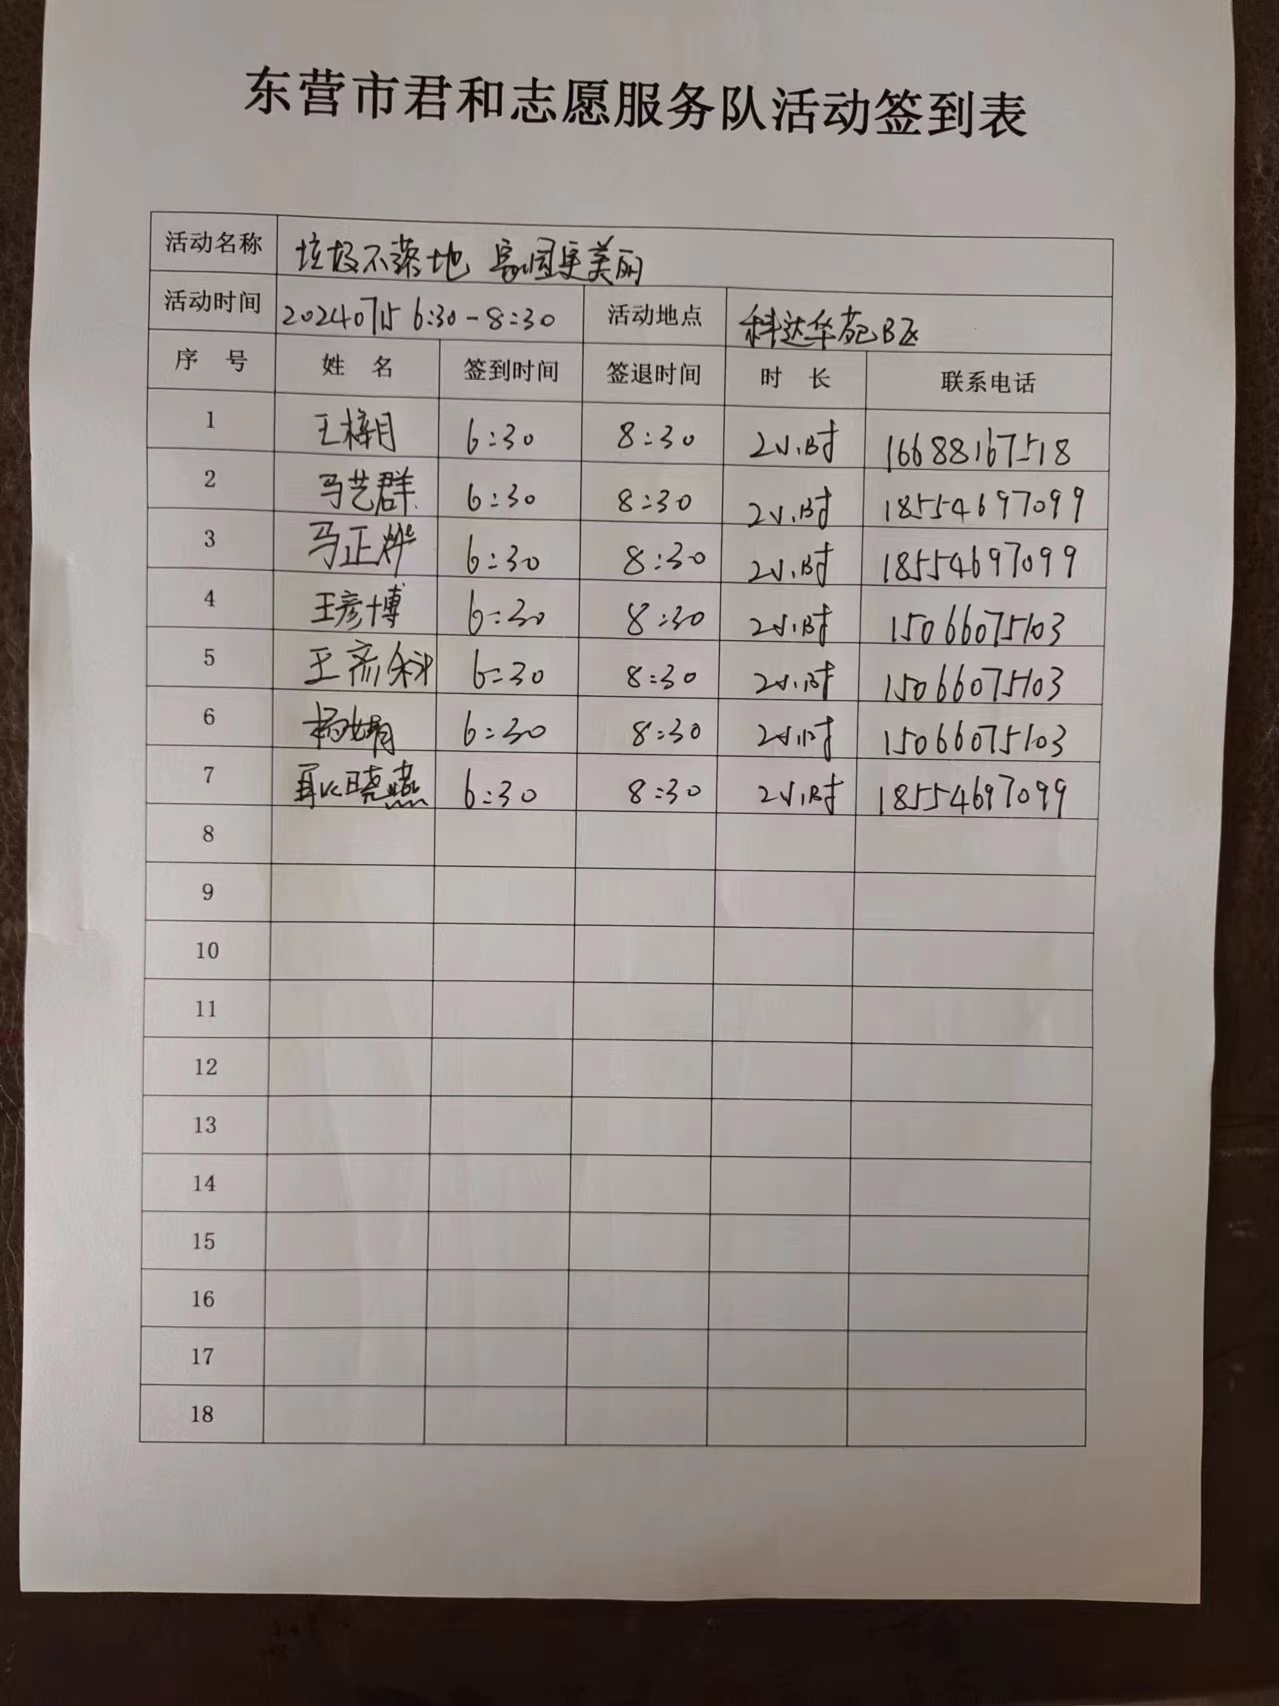 东营市君和志愿服务队活动签到表
活动名称 垃圾不落地 家园更美丽
活动时间 20240715 6:30-8:30 活动地点 科达华苑B区
序 号 姓 名 签到时间 签退时间 时 长 联系电话
1 王梓月 6:30 8:30 2小时 16688167518
2 马艺群 6:30 8:30 2小时 18554697099
3 马正烨 6:30 8:30 2小时 18554697099
4 王彦博 6:30 8:30 2小时 15066075103
5 王 6:30 8:30 2小时 15066075103
6 杨娟 6:30 8:30 2小时 15066075103
7 耿晓燕 6:30 8:30 2小时 18554697099
8
9
10
11
12
13
14
15
16
17
18